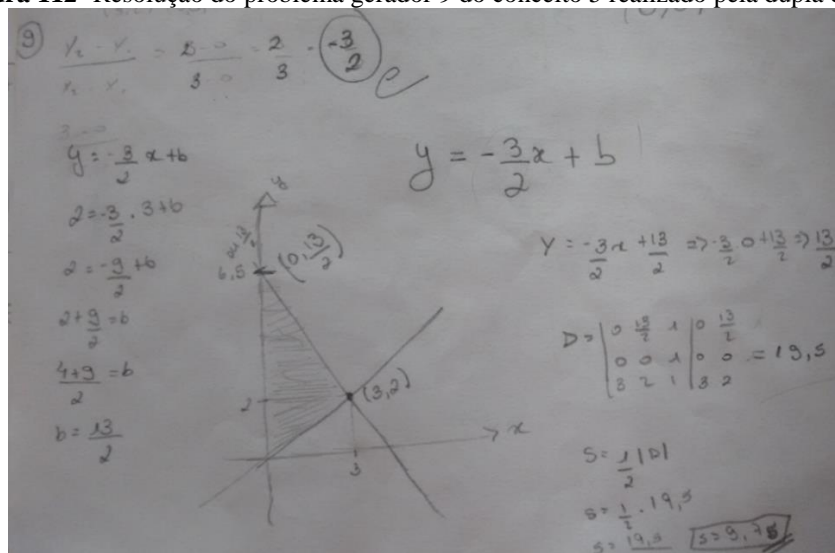 112 Resolução do problema gerador 9 do conceito 3 realizado pela dupla
9 Y₂ - Y₁ / x₂ - x₁ = 2-0 / 3-0 = 2/3 -3/2
y = -3/2 x + b
2 = -3/2 . 3 + b
2 = -9/2 + b
2 + 9/2 = b
4+9/2 = b
b = 13/2
y
6,5 ou 13/2 (0, 13/2)
2 (3,2)
3 x
y = -3/2 x + b
Y = -3/2 x + 13/2 => -3/2 0 + 13/2 => 13/2
D = | 0 13/2 1 | 0 13/2
| 0 0 1 | 0 0 = 19,5
| 3 2 1 | 3 2
S = 1/2 |D|
S = 1/2 . 19,5
S = 19,5 S = 9,75